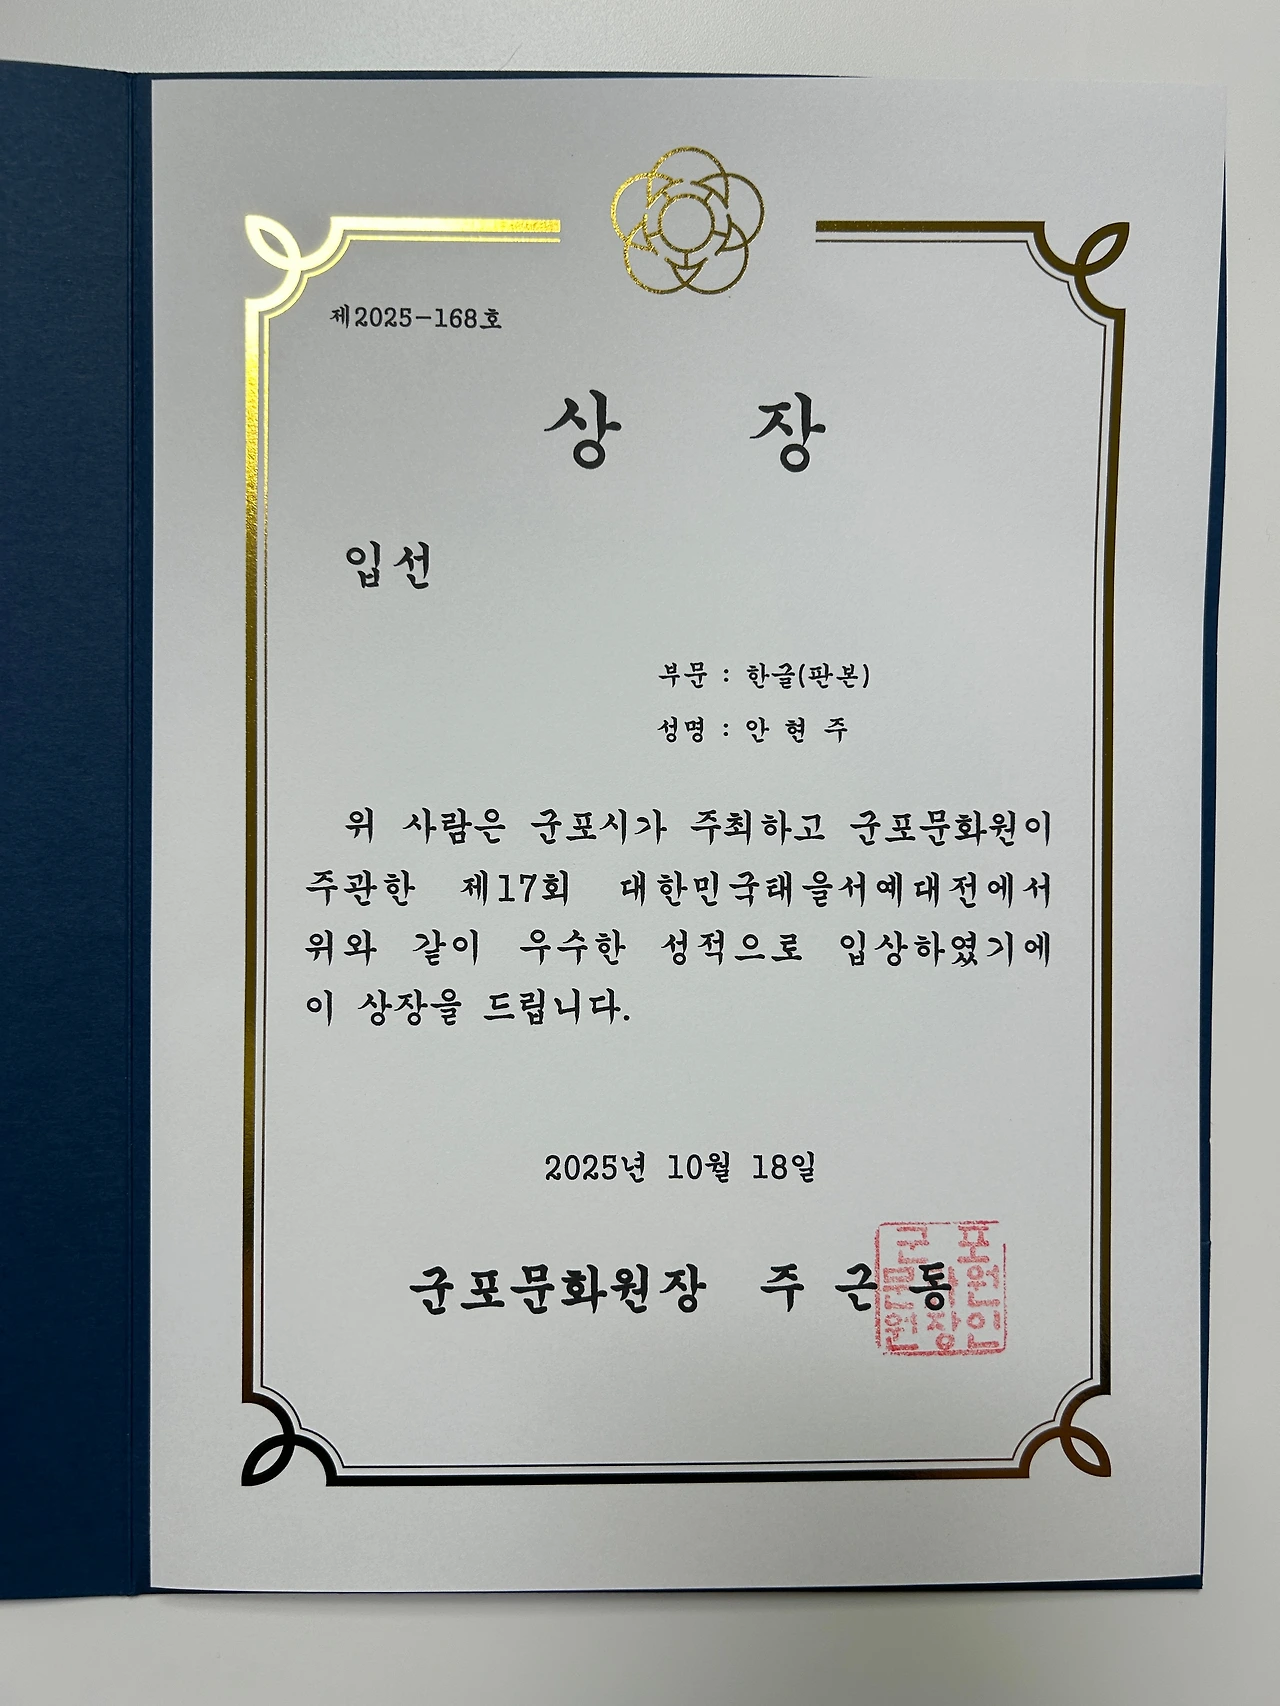 제2025-168호
상 장
입선
부문 : 한글(판본)
성명 : 안 현 주
위 사람은 군포시가 주최하고 군포문화원이
주관한 제17회 대한민국태을서예대전에서
위와 같이 우수한 성적으로 입상하였기에
이 상장을 드립니다.
2025년 10월 18일
군포문화원장 주 근 동
군포
문화원
원장인